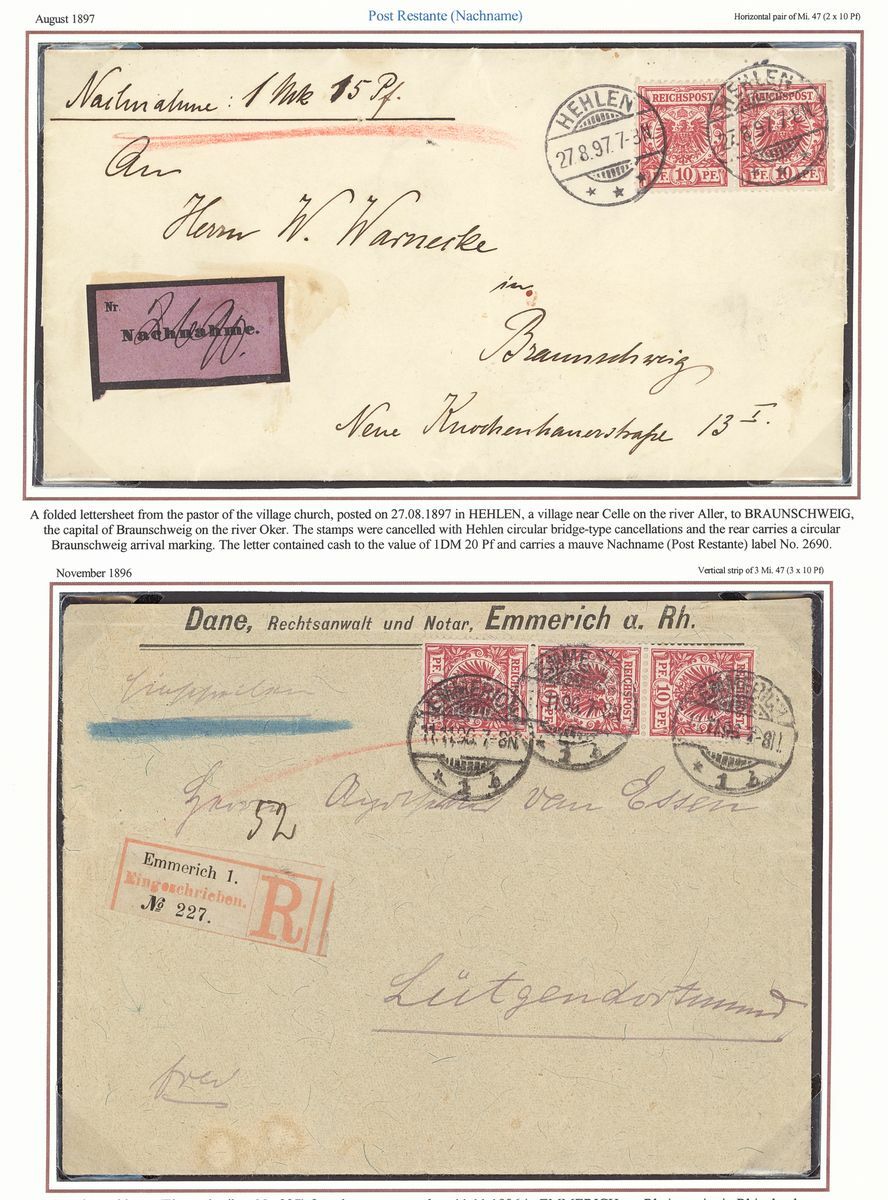 August 1897
Post Restante (Nachname)
Horizontal pair of Mi. 47 (2 x 10 Pf)
Nachnahme: 1 Mk 15 Pf.
REICHSPOST
REICHSPOST
PF. 10 PF.
PF. 10 PF.
HEHLEN
27.8.97.7-8N
HEHLEN
27.8.97.7-8N
An
Herrn W. Warnecke
in
Braunschweig
Neue Knochenhauerstraße 13 I.
Nr.
Nachnahme.
2690.
A folded lettersheet from the pastor of the village church, posted on 27.08.1897 in HEHLEN, a village near Celle on the river Aller, to BRAUNSCHWEIG,
the capital of Braunschweig on the river Oker. The stamps were cancelled with Hehlen circular bridge-type cancellations and the rear carries a circular
Braunschweig arrival marking. The letter contained cash to the value of 1DM 20 Pf and carries a mauve Nachname (Post Restante) label No. 2690.
November 1896
Vertical strip of 3 Mi. 47 (3 x 10 Pf)
Dane, Rechtsanwalt und Notar, Emmerich a. Rh.
Einschreiben
REICHSPOST
REICHSPOST
REICHSPOST
PF. 10 PF.
PF. 10 PF.
PF. 10 PF.
EMMERICH
11.11.96.7-8N
1 b
EMMERICH
11.96.7-8N
1 b
EMMERICH
11.96.7-8N
1 b
Herrn
van Essen
52
Emmerich 1.
Eingeschrieben.
№ 227.
R
Lütgendortmund
frei